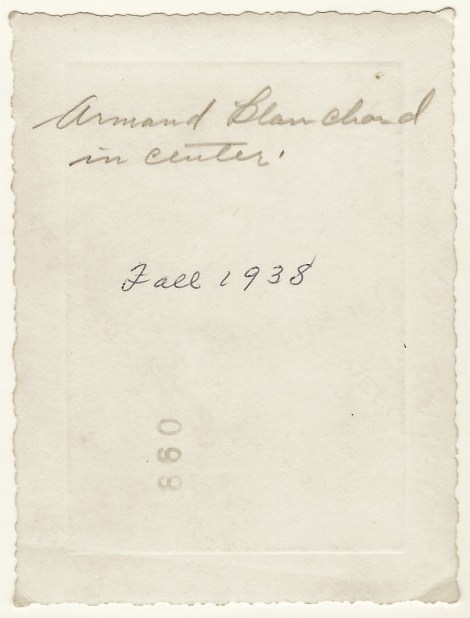 Armand Blanchard
in center.
Fall 1938
660